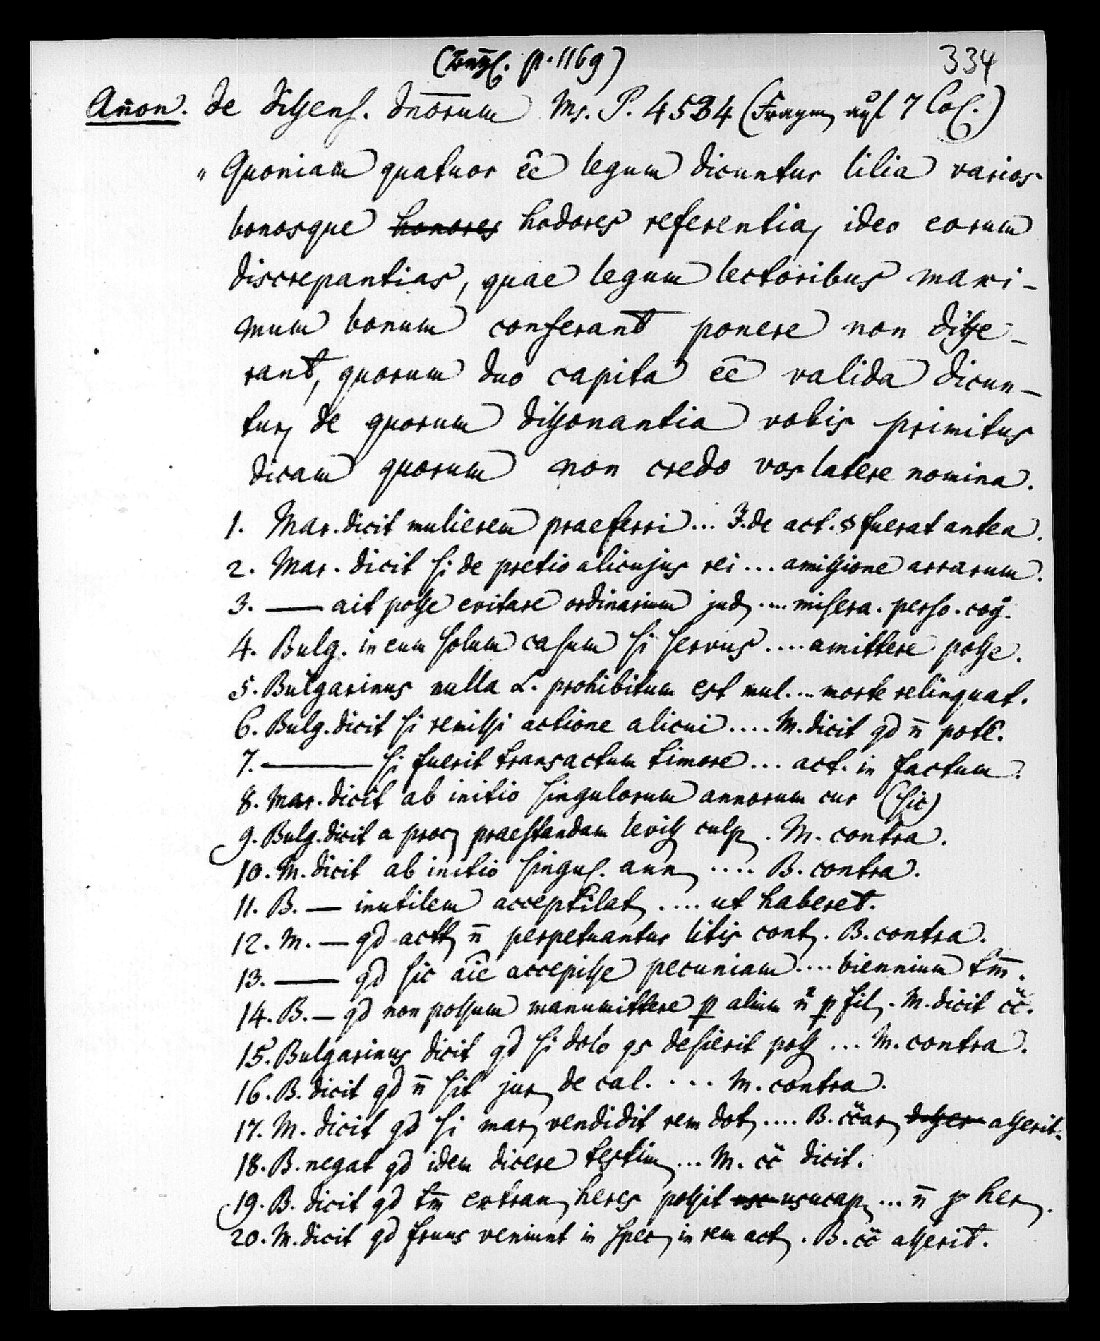 (Engl. p. 1169)
334
Anon. de dissens. dnorum Ms. P. 4534 (Fragm auf 7 Col.)
„Quoniam quatuor ēē legum dicuntur lilia varios
bonosque honores hodores referentia, ideo eorum
discrepantias, quae legum lectoribus maxi-
mum bonum conferant ponere non disse-
rant, quorum duo capita ēē valida dicun-
tur, de quorum dissonantia vobis primitus
dicam quorum non credo vos latere nomina.
1. Mar. dicit mulierem praeferri ... J. de act. § fuerat antea.
2. Mar. dicit si de pretio alicujus rei ... amissione arrarum.
3. — ait posse evitare ordinarium jud, .... misera. perso. cog.
4. Bulg. in eum solum casum si servus .... amittere posse.
5. Bulgarinus nulla L. prohibitum est mul. ... morte relinquat.
6. Bulg. dicit si remissi actione alicui .... M. dicit qd n̄ potē.
7. — si fuerit transactum timore ... act. in factum.
8. Mar. dicit ab initio singulorum annorum cur (sic)
9. Bulg. dicit a proc, praestandam levis culp,. M. contra.
10. M. dicit ab initio singul. ann, .... B. contra.
11. B. — inutilem acceptilat, .... ut haberet.
12. M. — qd act, n̄ perpetuantur litis cont,. B. contra.
13. — qd sic aīe accepisse pecuniam .... biennium tm̄.
14. B. — qd non possum manumittere p alium n̄ p fil,. M. dicit cc̄.
15. Bulgarinus dicit qd si dolo qs desierit poss ... M. contra.
16. B. dicit qd n̄ sit jur, de cal. .... M. contra.
17. M. dicit qd si mar, vendidit rem dot, .... B. cc̄ar, asserit.
18. B. negat qd idem dicere testim, ... M. cc̄ dicit.
19. B. dicit qd tm̄ extran, heres possit usucap, ... n̄ p her,.
20. M. dicit qd fruus veniunt in spec, in rem act,. B. cc̄ asserit.